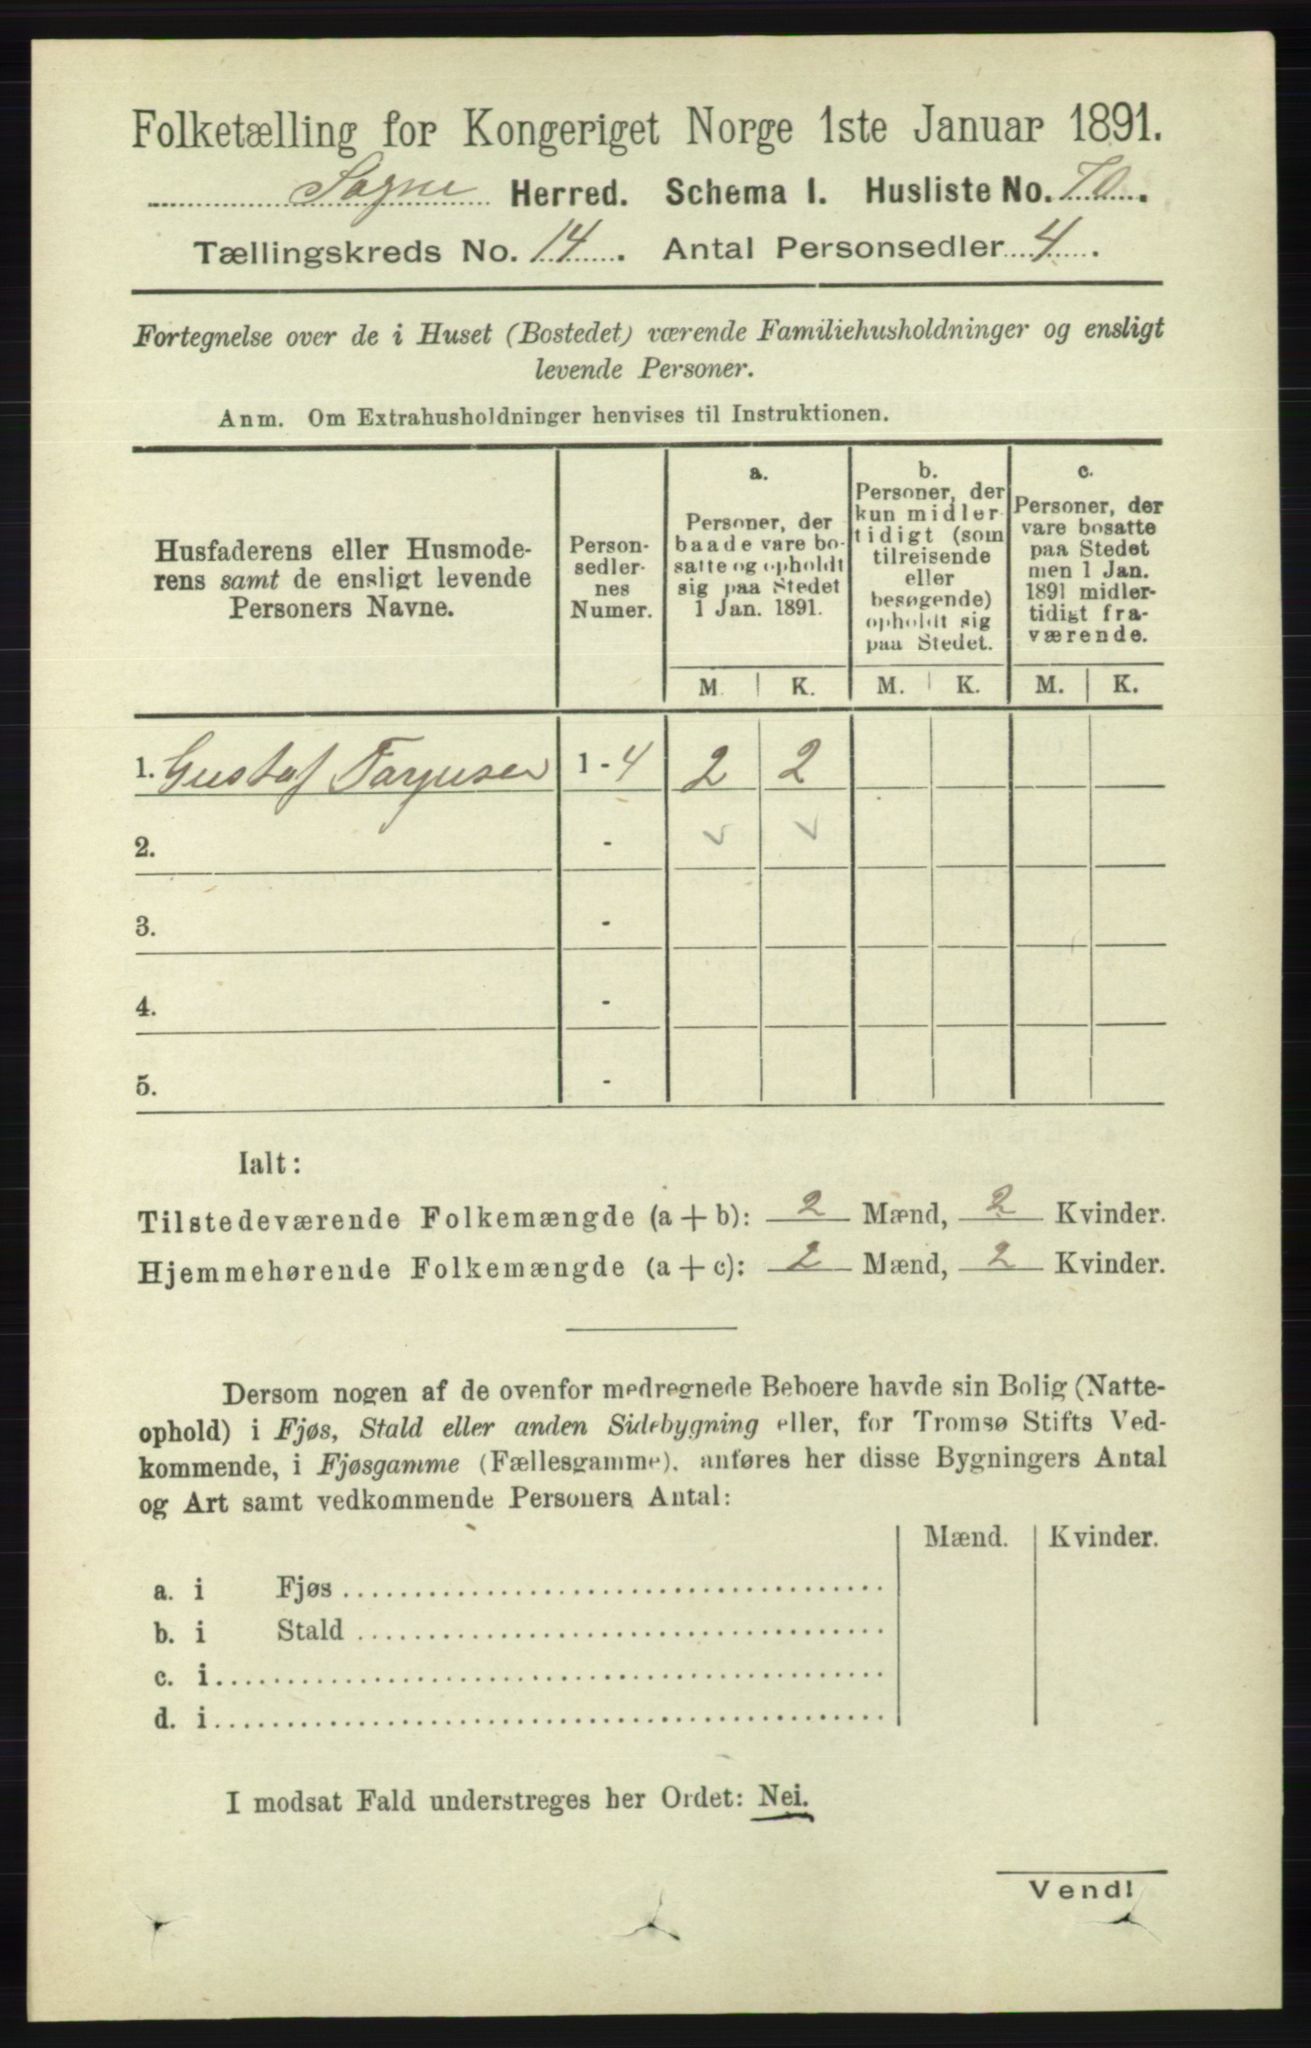 Folketælling for Kongeriget Norge 1ste Januar 1891.
Søgne Herred. Schema I. Husliste No. 70.
Tællingskreds No. 14. Antal Personsedler 4.
Fortegnelse over de i Huset (Bostedet) værende Familiehusholdninger og ensligt
levende Personer.
Anm. Om Extrahusholdninger henvises til Instruktionen.
Husfaderens eller Husmode-
rens samt de ensligt levende
Personers Navne.
Person-
sedler-
nes
Numer.
a.
Personer, der
baade vare bo-
satte og opholdt
sig paa Stedet
1 Jan. 1891.
b.
Personer, der
kun midler-
tidigt (som
tilreisende
eller
besøgende)
opholdt sig
paa Stedet.
c.
Personer, der
vare bosatte
paa Stedet
men 1 Jan.
1891 midler-
tidigt fra-
værende.
M. K. M. K. M. K.
1. Gustaf Tarjusen 1 - 4 2 2
2. -
3. -
4. -
5. -
Ialt:
Tilstedeværende Folkemængde (a + b): 2 Mænd, 2 Kvinder.
Hjemmehørende Folkemængde (a + c): 2 Mænd, 2 Kvinder.
Dersom nogen af de ovenfor medregnede Beboere havde sin Bolig (Natte-
ophold) i Fjøs, Stald eller anden Sidebygning eller, for Tromsø Stifts Ved-
kommende, i Fjøsgamme (Fællesgamme), anføres her disse Bygningers Antal
og Art samt vedkommende Personers Antal:
Mænd. Kvinder.
a. i Fjøs
b. i Stald
c. i
d. i
I modsat Fald understreges her Ordet: Nei.
Vend!